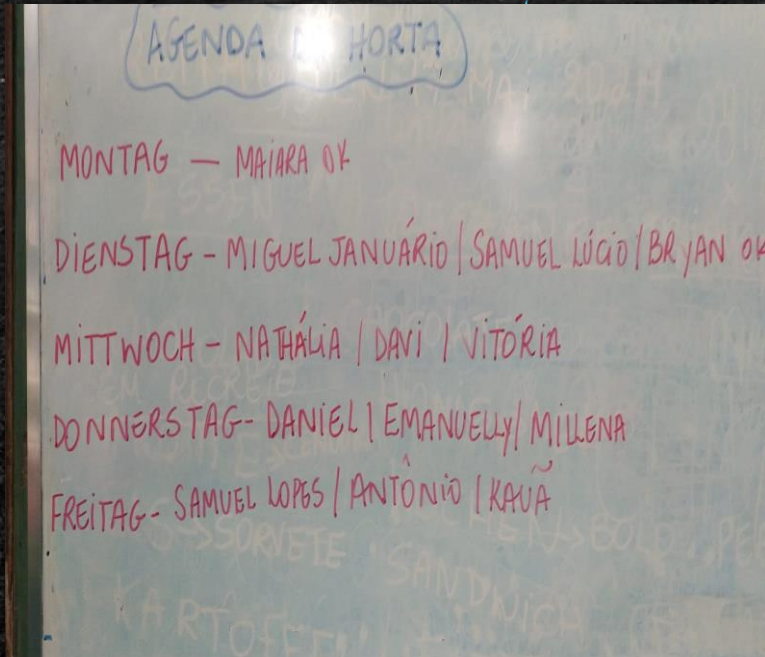 AGENDA HORTA
MONTAG — MAIARA OK
DIENSTAG - MIGUEL JANUÁRIO / SAMUEL LÚCIO / BRYAN OK
MITTWOCH - NATHÁLIA / DAVI / VITÓRIA
DONNERSTAG - DANIEL / EMANUELLY / MILLENA
FREITAG - SAMUEL LOPES / ANTÔNIO / KAUÃ
SORVETE SANDWICH